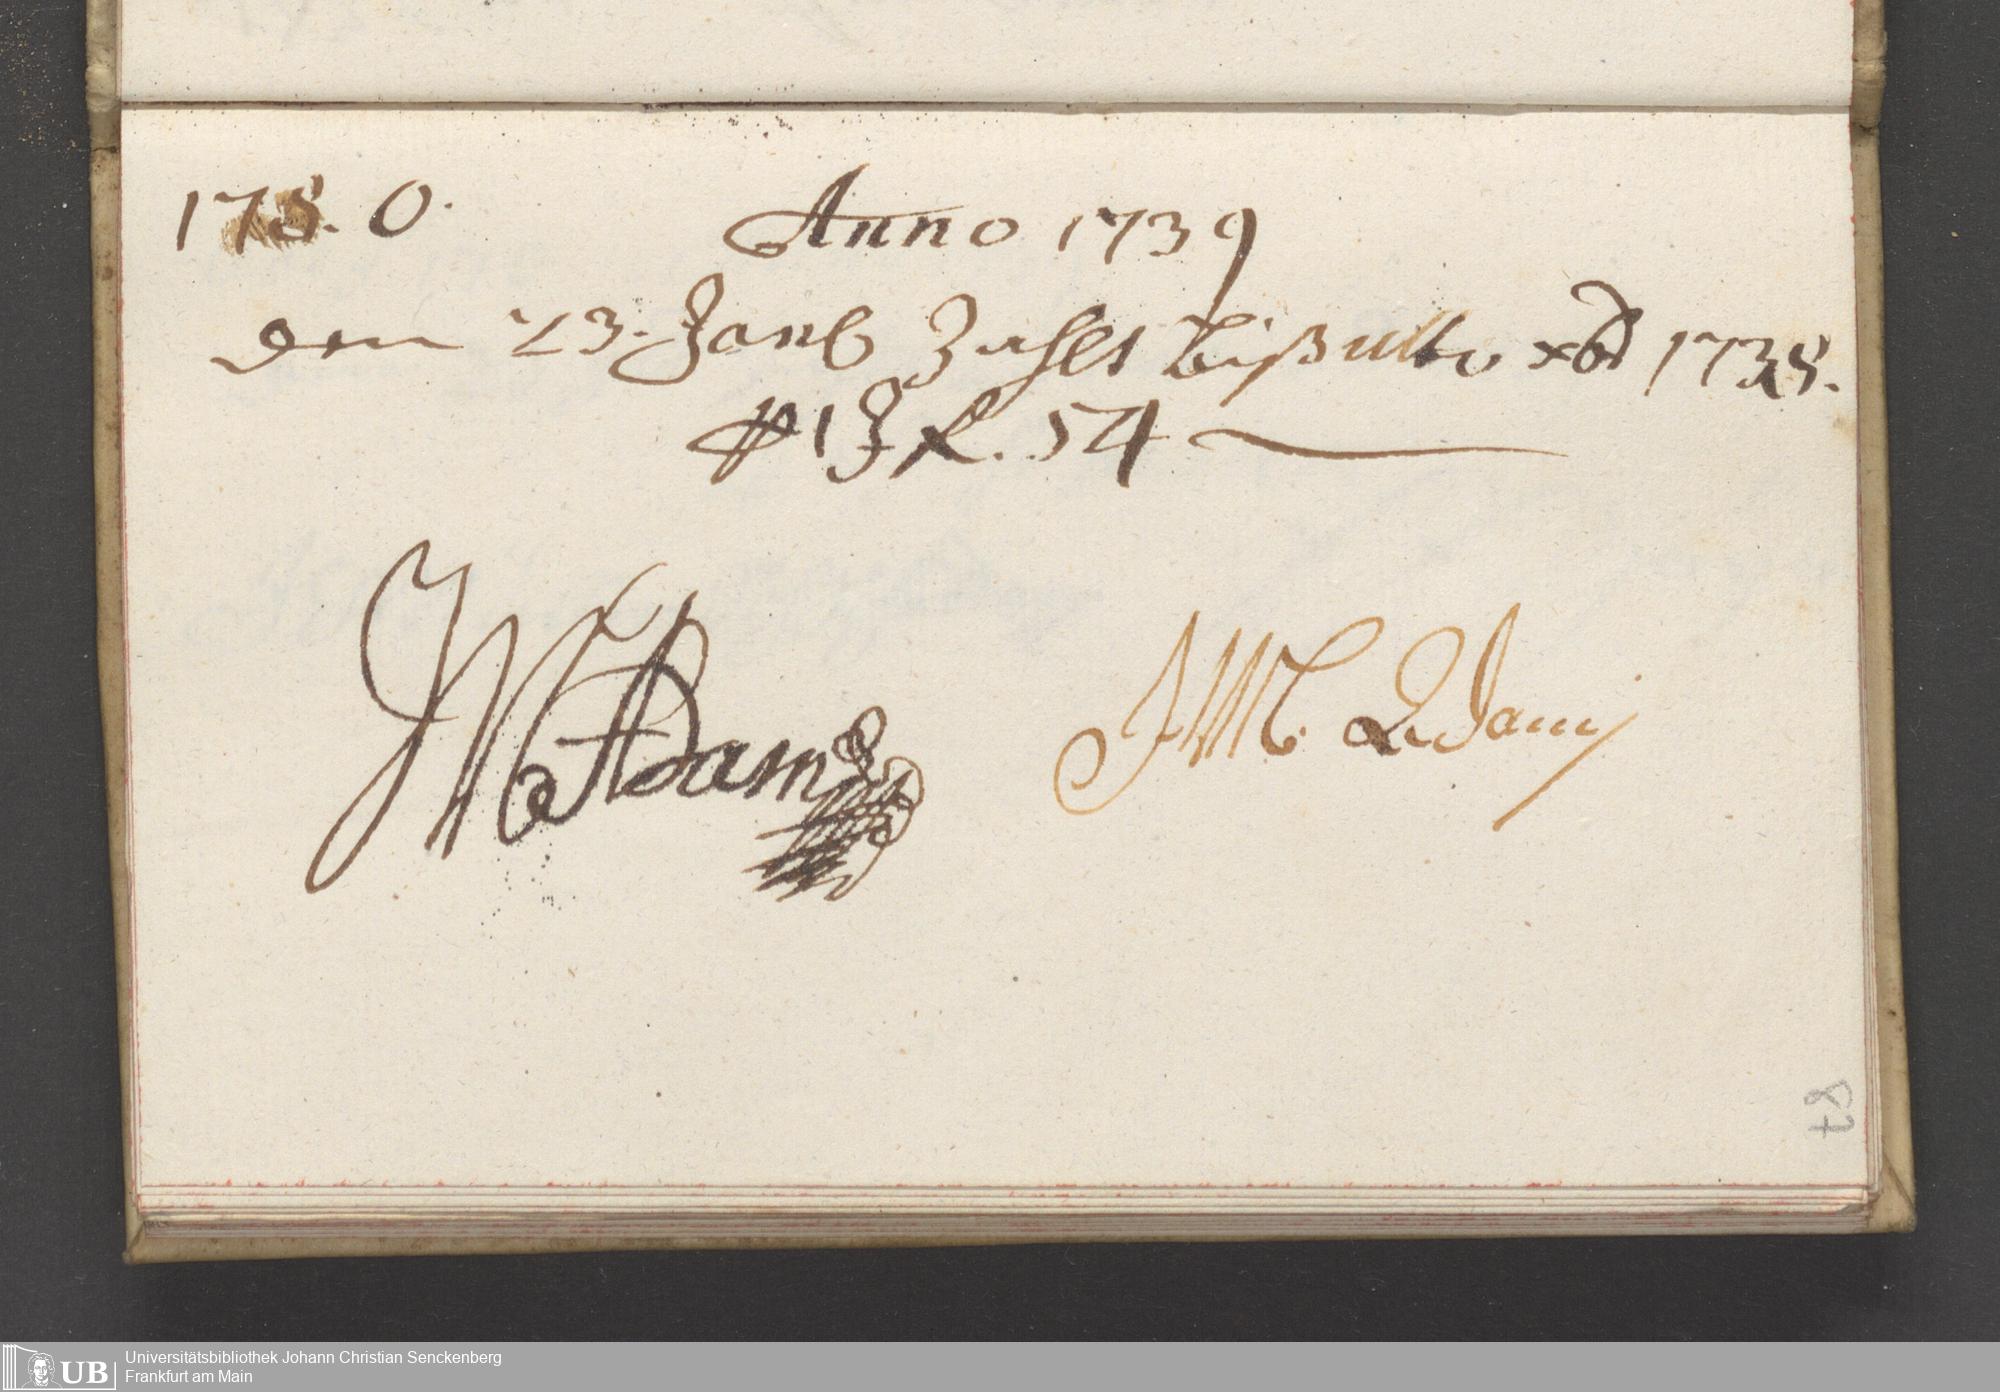 178. 0. Anno 1739
den 23. Janr zahlt biß ulto xbr 1738.
1 J f. 54
JM Adamj
JMC Adamj
87
UB Universitätsbibliothek Johann Christian Senckenberg
Frankfurt am Main